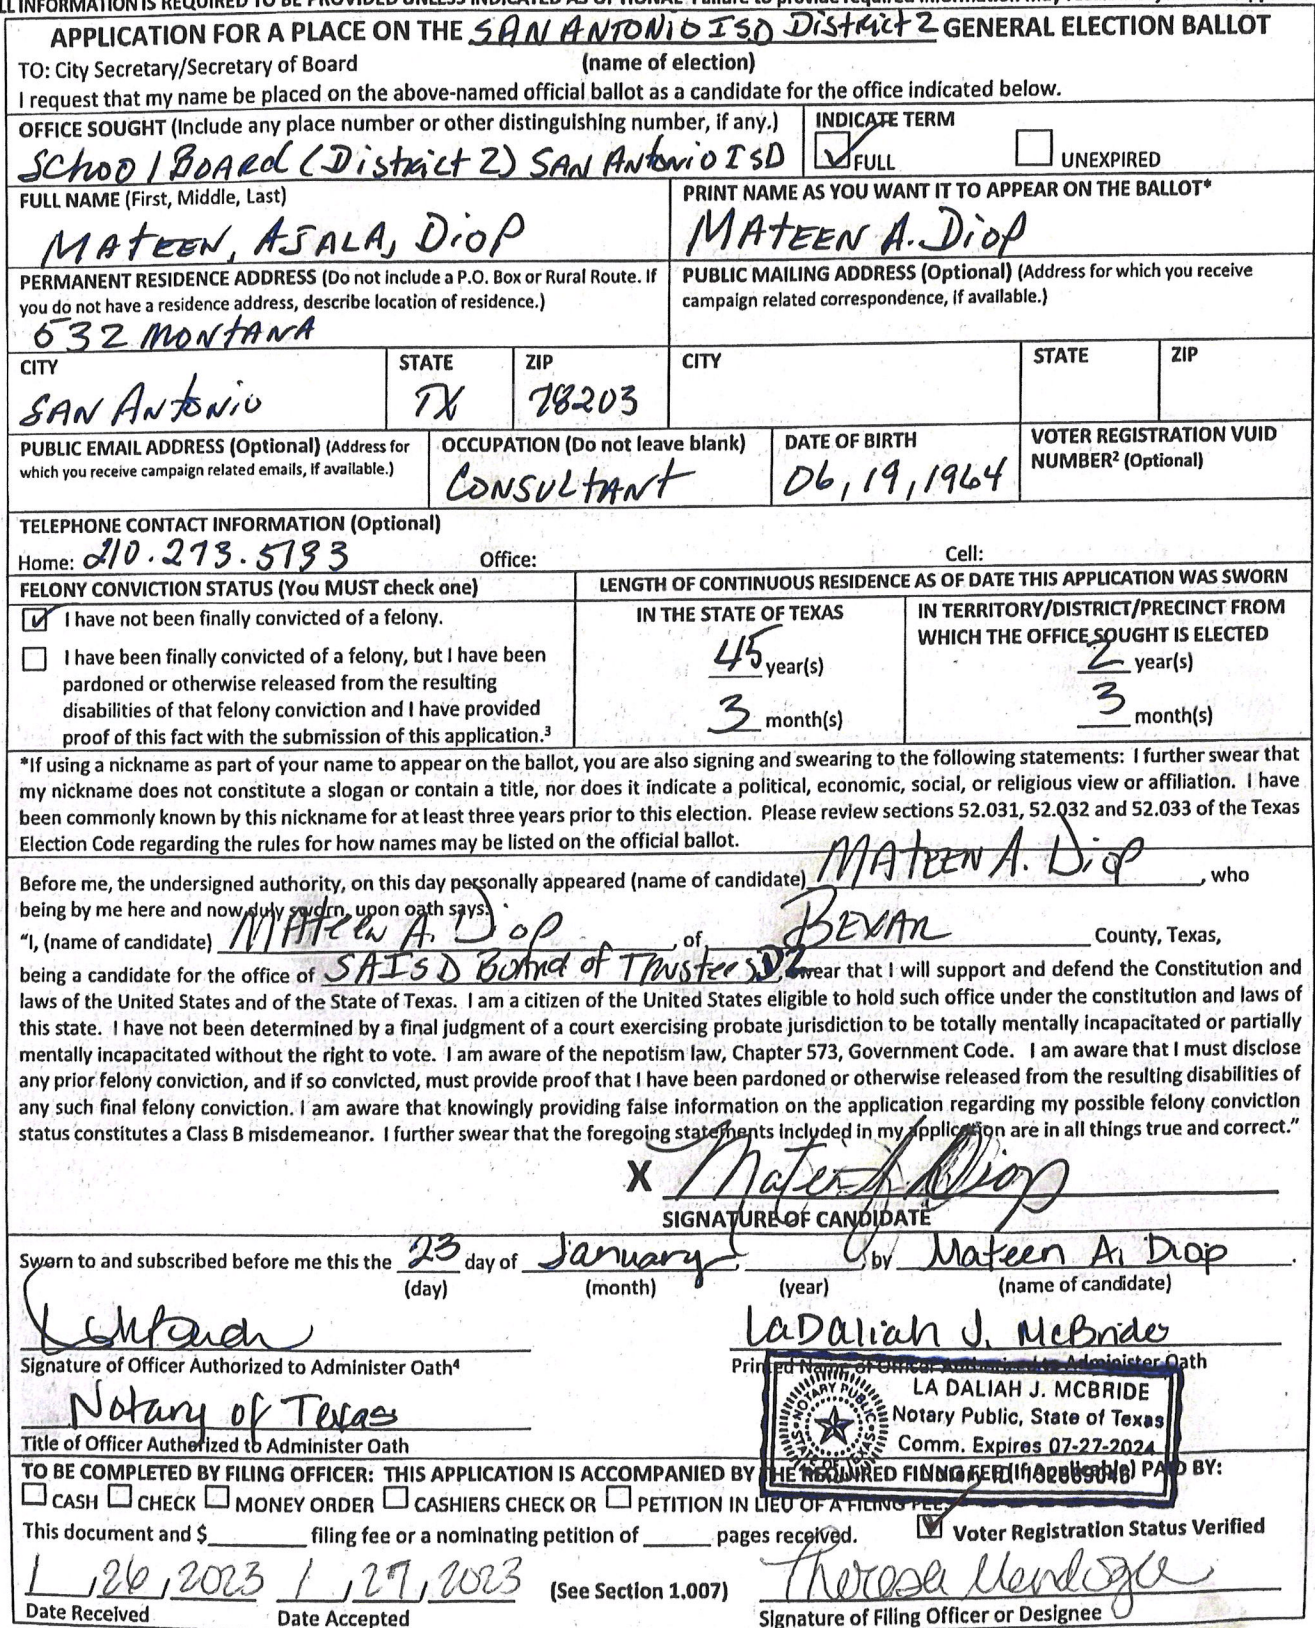 LL INFORMATION IS REQUIRED TO BE PROVIDED UNLESS INDICATED AS OPTIONAL
APPLICATION FOR A PLACE ON THE SAN ANTONIO ISD District 2 GENERAL ELECTION BALLOT
TO: City Secretary/Secretary of Board (name of election)
I request that my name be placed on the above-named official ballot as a candidate for the office indicated below.
OFFICE SOUGHT (Include any place number or other distinguishing number, if any.) INDICATE TERM
School Board (District 2) SAN Antonio ISD FULL UNEXPIRED
FULL NAME (First, Middle, Last) PRINT NAME AS YOU WANT IT TO APPEAR ON THE BALLOT*
MATEEN, ASALA, Diop MATEEN A. Diop
PERMANENT RESIDENCE ADDRESS (Do not include a P.O. Box or Rural Route. If you do not have a residence address, describe location of residence.) PUBLIC MAILING ADDRESS (Optional) (Address for which you receive campaign related correspondence, if available.)
632 MONTANA
CITY STATE ZIP CITY STATE ZIP
SAN ANTONIO TX 78203
PUBLIC EMAIL ADDRESS (Optional) (Address for which you receive campaign related emails, if available.) OCCUPATION (Do not leave blank) DATE OF BIRTH VOTER REGISTRATION VUID NUMBER² (Optional)
CONSULTANT 06, 19, 1964
TELEPHONE CONTACT INFORMATION (Optional)
Home: 210.273.5793 Office: Cell:
FELONY CONVICTION STATUS (You MUST check one) LENGTH OF CONTINUOUS RESIDENCE AS OF DATE THIS APPLICATION WAS SWORN
I have not been finally convicted of a felony.
I have been finally convicted of a felony, but I have been
pardoned or otherwise released from the resulting
disabilities of that felony conviction and I have provided
proof of this fact with the submission of this application.³
IN THE STATE OF TEXAS
45 year(s)
3 month(s)
IN TERRITORY/DISTRICT/PRECINCT FROM
WHICH THE OFFICE SOUGHT IS ELECTED
2 year(s)
3 month(s)
*If using a nickname as part of your name to appear on the ballot, you are also signing and swearing to the following statements: I further swear that
my nickname does not constitute a slogan or contain a title, nor does it indicate a political, economic, social, or religious view or affiliation. I have
been commonly known by this nickname for at least three years prior to this election. Please review sections 52.031, 52.032 and 52.033 of the Texas
Election Code regarding the rules for how names may be listed on the official ballot.
Before me, the undersigned authority, on this day personally appeared (name of candidate) MATEEN A. Diop, who
being by me here and now duly sworn, upon oath says:
"I, (name of candidate) MAteen A. Diop, of BEXAR County, Texas,
being a candidate for the office of SAISD Board of Trustees D2, swear that I will support and defend the Constitution and
laws of the United States and of the State of Texas. I am a citizen of the United States eligible to hold such office under the constitution and laws of
this state. I have not been determined by a final judgment of a court exercising probate jurisdiction to be totally mentally incapacitated or partially
mentally incapacitated without the right to vote. I am aware of the nepotism law, Chapter 573, Government Code. I am aware that I must disclose
any prior felony conviction, and if so convicted, must provide proof that I have been pardoned or otherwise released from the resulting disabilities of
any such final felony conviction. I am aware that knowingly providing false information on the application regarding my possible felony conviction
status constitutes a Class B misdemeanor. I further swear that the foregoing statements included in my application are in all things true and correct."
X Mateen A Diop
SIGNATURE OF CANDIDATE
Sworn to and subscribed before me this the 23 day of January, by Mateen A. Diop.
(day) (month) (year) (name of candidate)
LaDaliah J. McBride
Signature of Officer Authorized to Administer Oath⁴ Printed Name of Officer Authorized to Administer Oath
Notary of Texas
Title of Officer Authorized to Administer Oath
NOTARY PUBLIC
STATE OF TEXAS
LA DALIAH J. MCBRIDE
Notary Public, State of Texas
Comm. Expires 07-27-2024
TO BE COMPLETED BY FILING OFFICER: THIS APPLICATION IS ACCOMPANIED BY THE REQUIRED FILING FEE (If Applicable) PAID BY:
CASH CHECK MONEY ORDER CASHIERS CHECK OR PETITION IN LIEU OF A FILING FEE.
This document and $ filing fee or a nominating petition of pages received. Voter Registration Status Verified
1, 26, 2023 1, 27, 2023 (See Section 1.007) Theresa Mendoza
Date Received Date Accepted Signature of Filing Officer or Designee